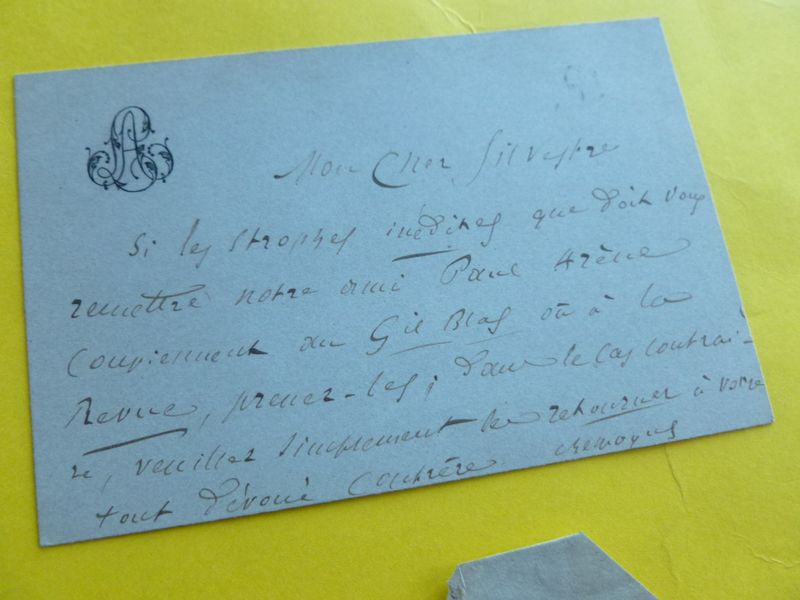 Mon Cher Silvestre
Si les strophes inédites que doit vous
remettre notre ami Paul Arène
conviennent au Gil Blas ou à la
Revue, prenez-les ; dans le cas contrai-
re, veuillez simplement les retourner à votre
tout dévoué confrère